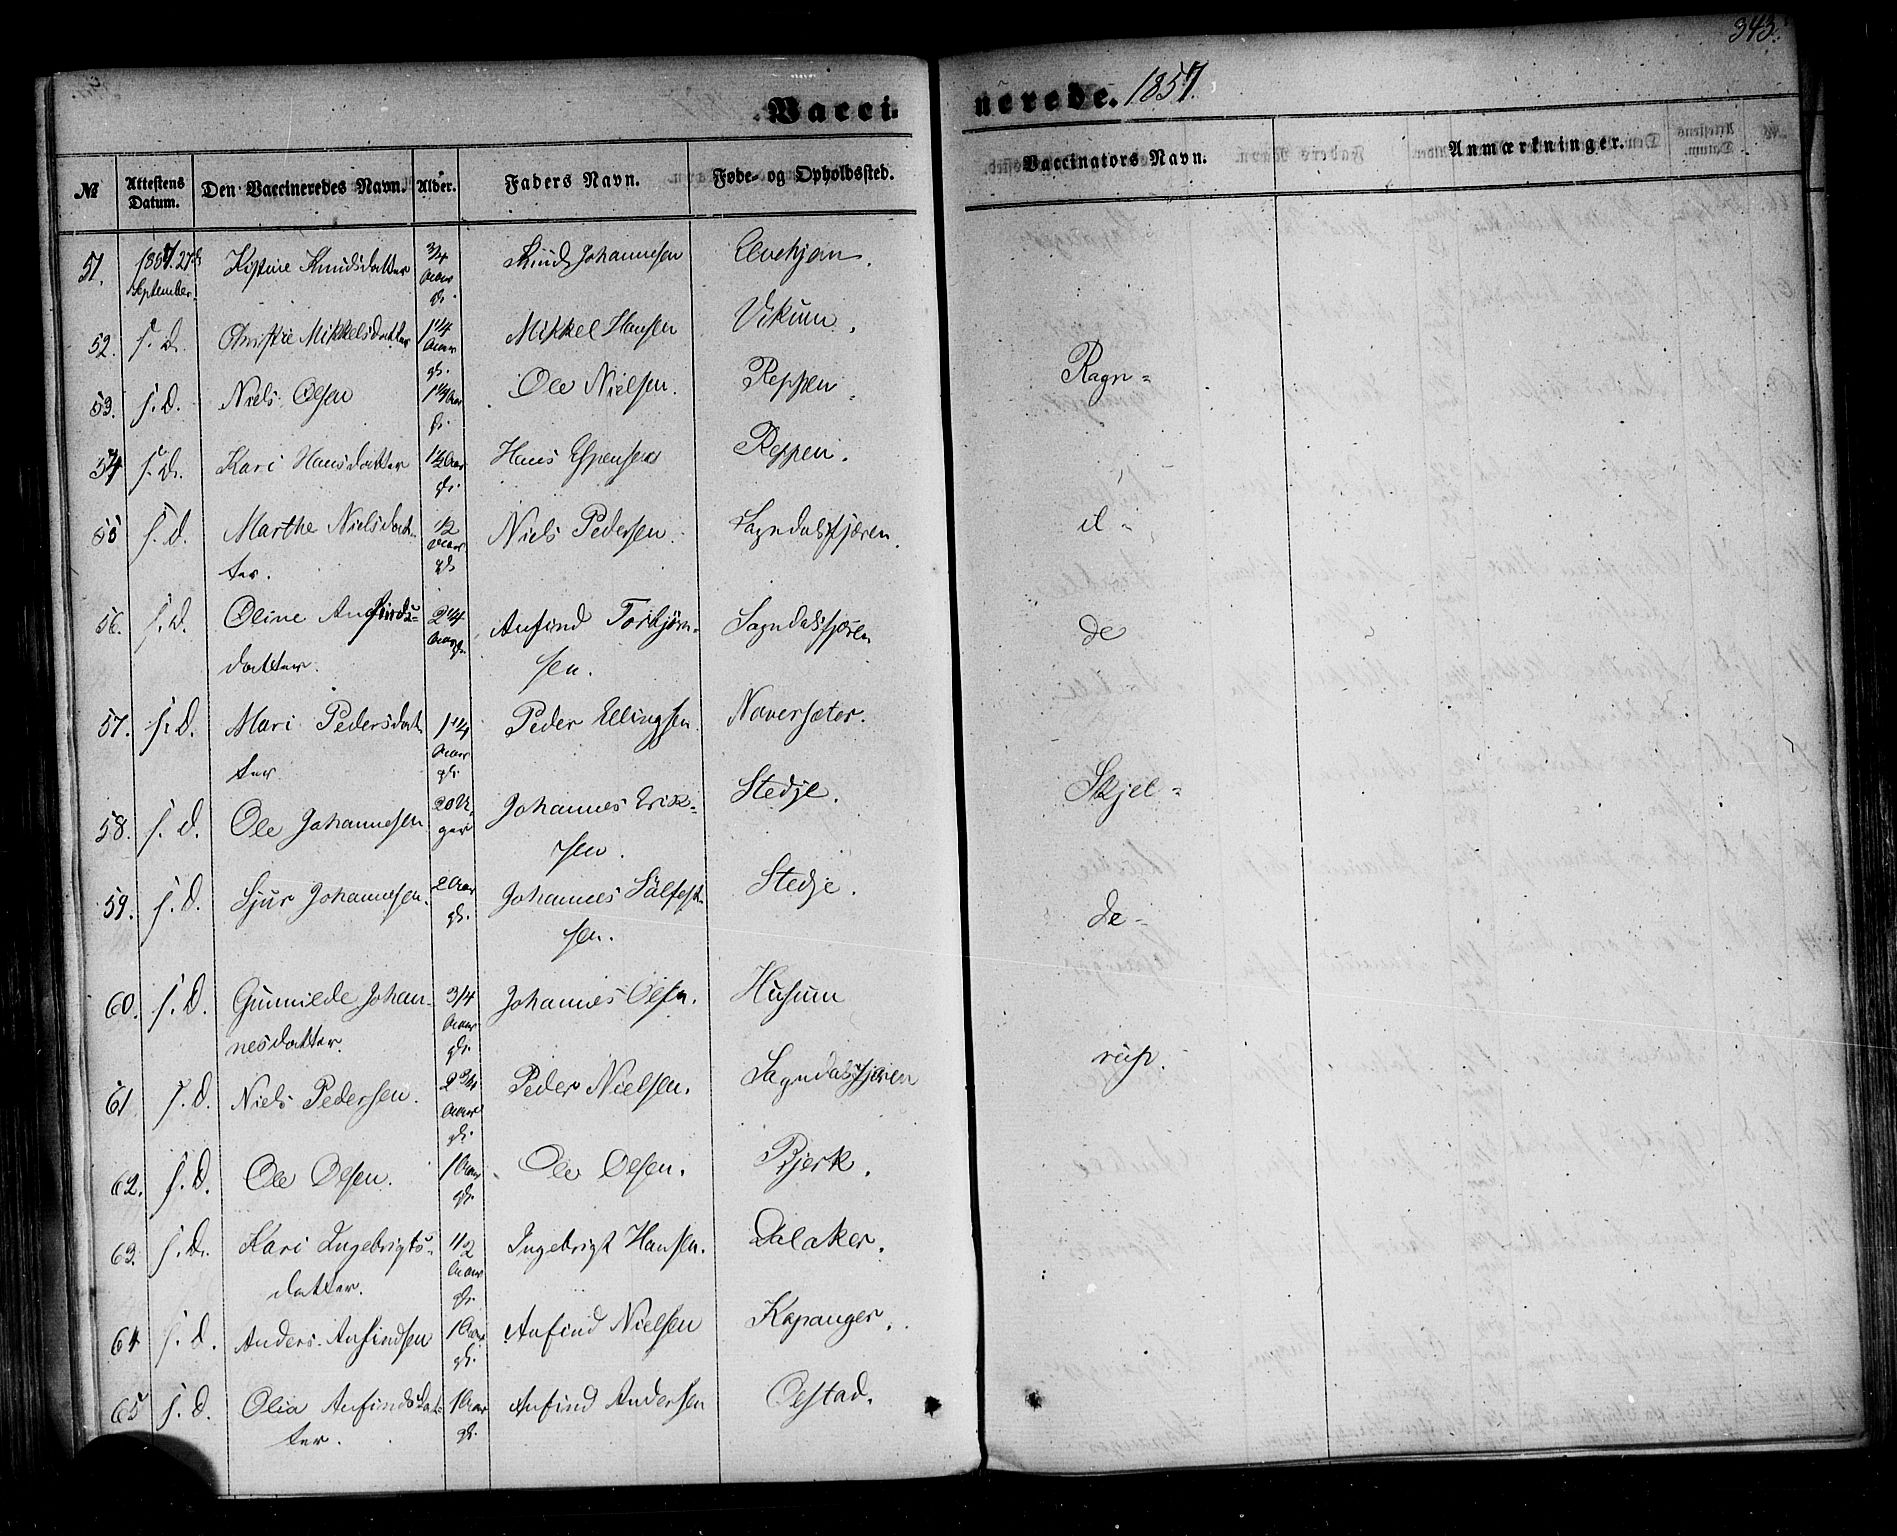 343.
Vacci-
nerede. 1857.
№
Attestens Datum.
Den Vaccineredes Navn.
Alder.
Faders Navn.
Føde- og Opholdssted.
Vaccinators Navn.
Anmærkninger.
51. 1857. 27de September. Kistine Knudsdatter 3/4 Aar gl. Knud Johannesen
52. s. D. Christie Mikkelsdatter 1 1/4 Aar gl. Mikkel Hansen Vikum.
53. s. D. Niels Olsen 1 1/4 Aar gl. Ole Nielsen. Reppen.
54 s. D. Kari Hansdatter 1 1/2 Aar gl. Hans Espensen Reppen.
55 s. D. Marthe Nielsdat- 1/2 Aar gl. Niels Pedersen. Sogndalsfjæren.
ter.
56. s. D. Oline Anfinds- 2 1/4 Aar gl. Anfind Torbjørn- Sogndalsfjæren
datter. sen.
57. s. D. Mari Pedersdat 1 1/4 Aar gl. Peder Ellingsen Noversæter.
ter.
58. s. D. Ole Johannesen 20 U- ger Johannes Erik- Stedje.
sen.
59. s. D. Sjur Johannesen. 2 Aar gl. Johannes Sålfest- Stedje.
sen.
60. s. D. Gunnilde Johan- 3/4 Aar gl. Johannes Olsen. Husum
nesdatter.
61 s. D. Niels Pedersen. 2 3/4 Aar gl. Peder Nielsen. Sogndalsfjæren
62. s. D. Ole Olsen. 1 Aar gl. Ole Olsen. Bjerk.
63. s. D. Kari Ingebrigts- 1/2 Aar gl. Ingebrigt Hansen. Dalaker.
datter.
64 s. D. Anders Anfindsen 1 Aar gl. Anfind Nielsen Kapanger.
65 s. D. Olia Anfindsdat- 1 Aar gl. Anfind Andersen Oestad.
ter.
Ragn-
il-
de
Skjel-
de-
rup.